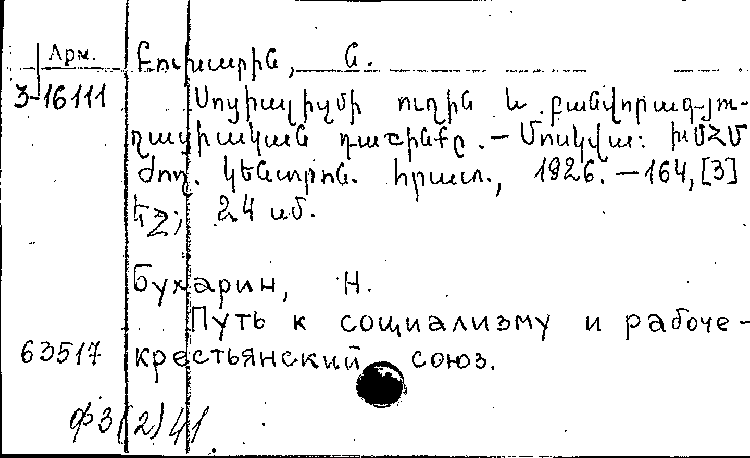 Арм. Բուխարին, Ն.
3-16111 Սոցիալիզմի ուղին և բանվորագյու-
ղացիական դաշինքը. – Մոսկվա: ԽՍՀՄ
ժող. կենտրոն. հրատ., 1926. – 164, [3]
եջ; 24 սմ.
Бухарин, Н.
Путь к социализму и рабоче-
63517 крестьянский союз.
Ф3(2)41.